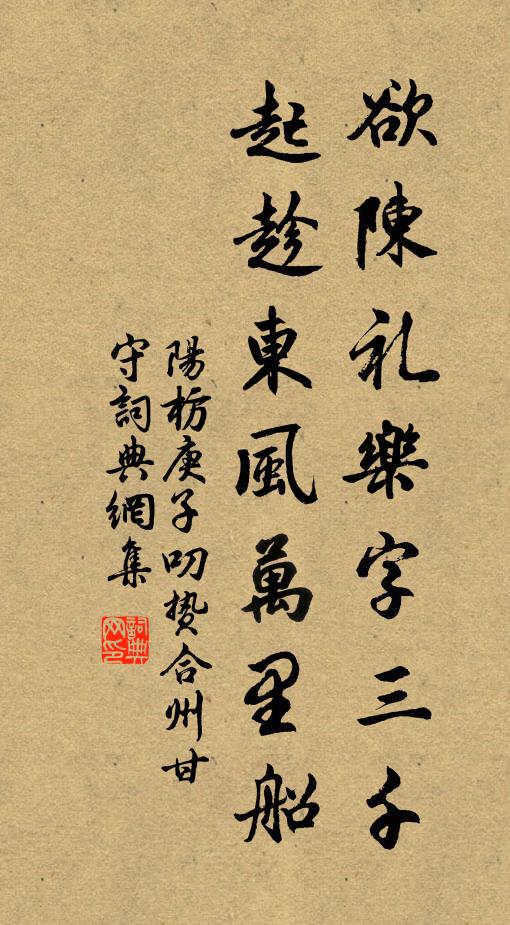 欲陳礼樂字三千
起趁東風萬里船
陽枋庚子叨贄合州甘
守詞典網集
詞典網印